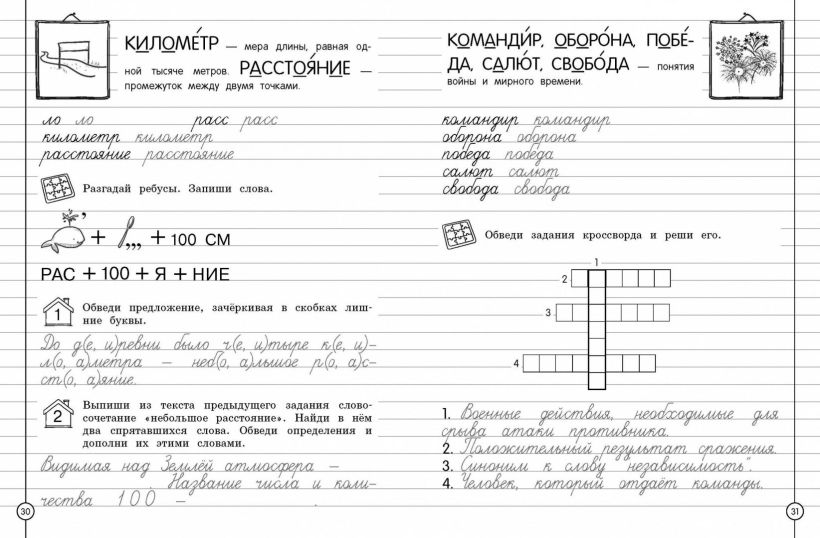 КИЛОМЕ́ТР — мера длины, равная од-
ной тысяче метров. РАССТОЯ́НИЕ —
промежуток между двумя точками.
ло ло расс расс
километр километр
расстояние расстояние
Разгадай ребусы. Запиши слова.
’ + ,,, + 100 СМ
РАС + 100 + Я + НИЕ
1 Обведи предложение, зачёркивая в скобках лиш-
ние буквы.
До д(е, и)ревни было ч(е, и)тыре к(е, и)-
л(о, а)метра — неб(о, а)льшое р(о, а)с-
ст(о, а)яние.
2 Выпиши из текста предыдущего задания слово-
сочетание «небольшое расстояние». Найди в нём
два спрятавшихся слова. Обведи определения и
дополни их этими словами.
Видимая над Землёй атмосфера —
. Название числа и коли-
чества 100 — .
30
КОМАНДИ́Р, ОБОРО́НА, ПОБЕ́-
ДА, САЛЮ́Т, СВОБО́ДА — понятия
войны и мирного времени.
командир командир
оборона оборона
победа победа
салют салют
свобода свобода
Обведи задания кроссворда и реши его.
1
2
3
4
1. Военные действия, необходимые для
срыва атаки противника.
2. Положительный результат сражения.
3. Синоним к слову "независимость".
4. Человек, который отдаёт команды.
31